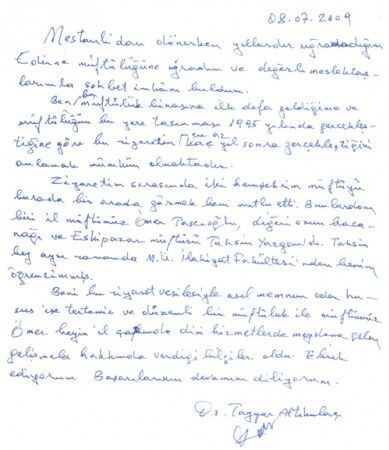 08.07.2009
Mestanlı'dan dönerken yıllardır uğramadığım
Edirne müftülüğüne uğradım ve değerli meslektaş-
larımla sohbet imkânı buldum.
Ben bu müftülük binasına ilk defa geldiğime ve
müftülüğün bu yere taşınması 1995 yılında gerçekleş-
tiğine göre bu ziyaretim en az kaç yıl sonra gerçekleştiğini
anlamak mümkün olmaktadır.
Ziyaretim sırasında iki hemşehrim müftüyü
burada bir arada görmek beni mutlu etti. Bunlardan
biri il müftümüz Ömer diğeri onun baca-
nağı ve Eskipazar müftüsü Tahsin Yazgan'dı. Tahsin
bey aynı zamanda M.Ü. İlahiyat Fakültesi'nden benim
öğrencimmiş.
Beni bu ziyaret vesilesiyle asıl memnun eden hu-
sus ise tertemiz ve düzenli bir müftülük ile müftümüz
Ömer beyin il çapında dini hizmetlerde meydana gelen
gelişmeler hakkında verdiği bilgiler oldu. Tebrik
ediyorum. Başarılarının devamını diliyorum.
Dr. Tayyar Altıkulaç